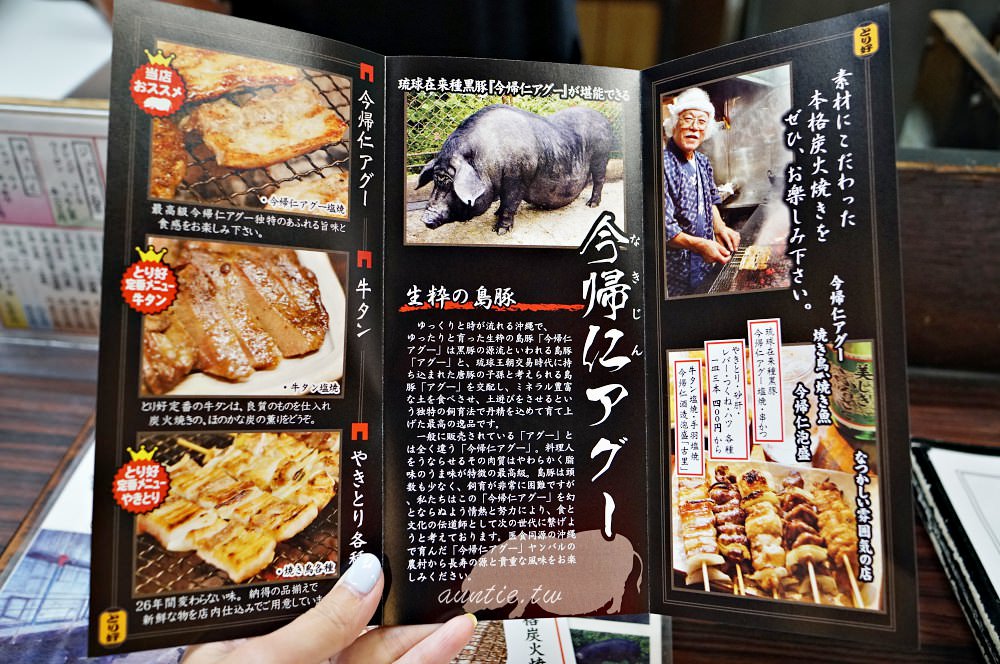 当店
おススメ
今帰仁アグー
・今帰仁アグー塩焼
最高級今帰仁アグー独特のあふれる旨味と
食感をお楽しみ下さい。
とり好
定番メニュー
牛タン
牛タン
・牛タン塩焼
とり好定番の牛タンは、良質のものを仕入れ
炭火焼きの、ほのかな炭の薫りをどうぞ。
とり好
定番メニュー
やきとり
やきとり各種
・焼き鳥各種
26年間変わらない味。納得の品揃えで
新鮮な物を店内仕込みでご用意してい
とり好
琉球在来種黒豚『今帰仁アグー』が堪能できる
今帰仁アグー
なきじん
生粋の島豚
ゆっくりと時が流れる沖縄で、
ゆったりと育った生粋の島豚「今帰仁
アグー」は黒豚の源流といわれる島豚
「アグー」と、琉球王朝交易時代に持
ち込まれた唐豚の子孫と考えられる島
豚「アグー」を交配し、ミネラル豊富
な土を食べさせ、土遊びをさせるとい
う独特の飼育法で丹精を込めて育て上
げた最高の逸品です。
一般に販売されている「アグー」と
は全く違う「今帰仁アグー」。料理人
をうならせるその肉質はやわらかく脂
味のうま味が特徴の最高級。島豚は頭
数も少なく、飼育が非常に困難ですが、
私たちはこの「今帰仁アグー」を幻
とならぬよう情熱と努力により、食と
文化の伝道師として次の世代に繋げよ
うと考えております。医食同源の沖縄
で育んだ「今帰仁アグー」ヤンバルの
農村から長寿の源と貴重な風味をお楽
しみください。
auntie.tw
とり好
素材にこだわった
本格炭火焼きを
ぜひ、お楽しみ下さい。
今帰仁アグー
焼き鳥、焼き魚
今帰仁泡盛
なつかしい雰囲気の店
琉球在来種黒豚
今帰仁アグー塩焼・串かつ
やきとり・砂肝・
レバー・つくね・ハツ 各種
一皿三本 四〇〇円から
牛タン塩焼・手羽塩焼
今帰仁酒造泡盛「古里」
炭火焼